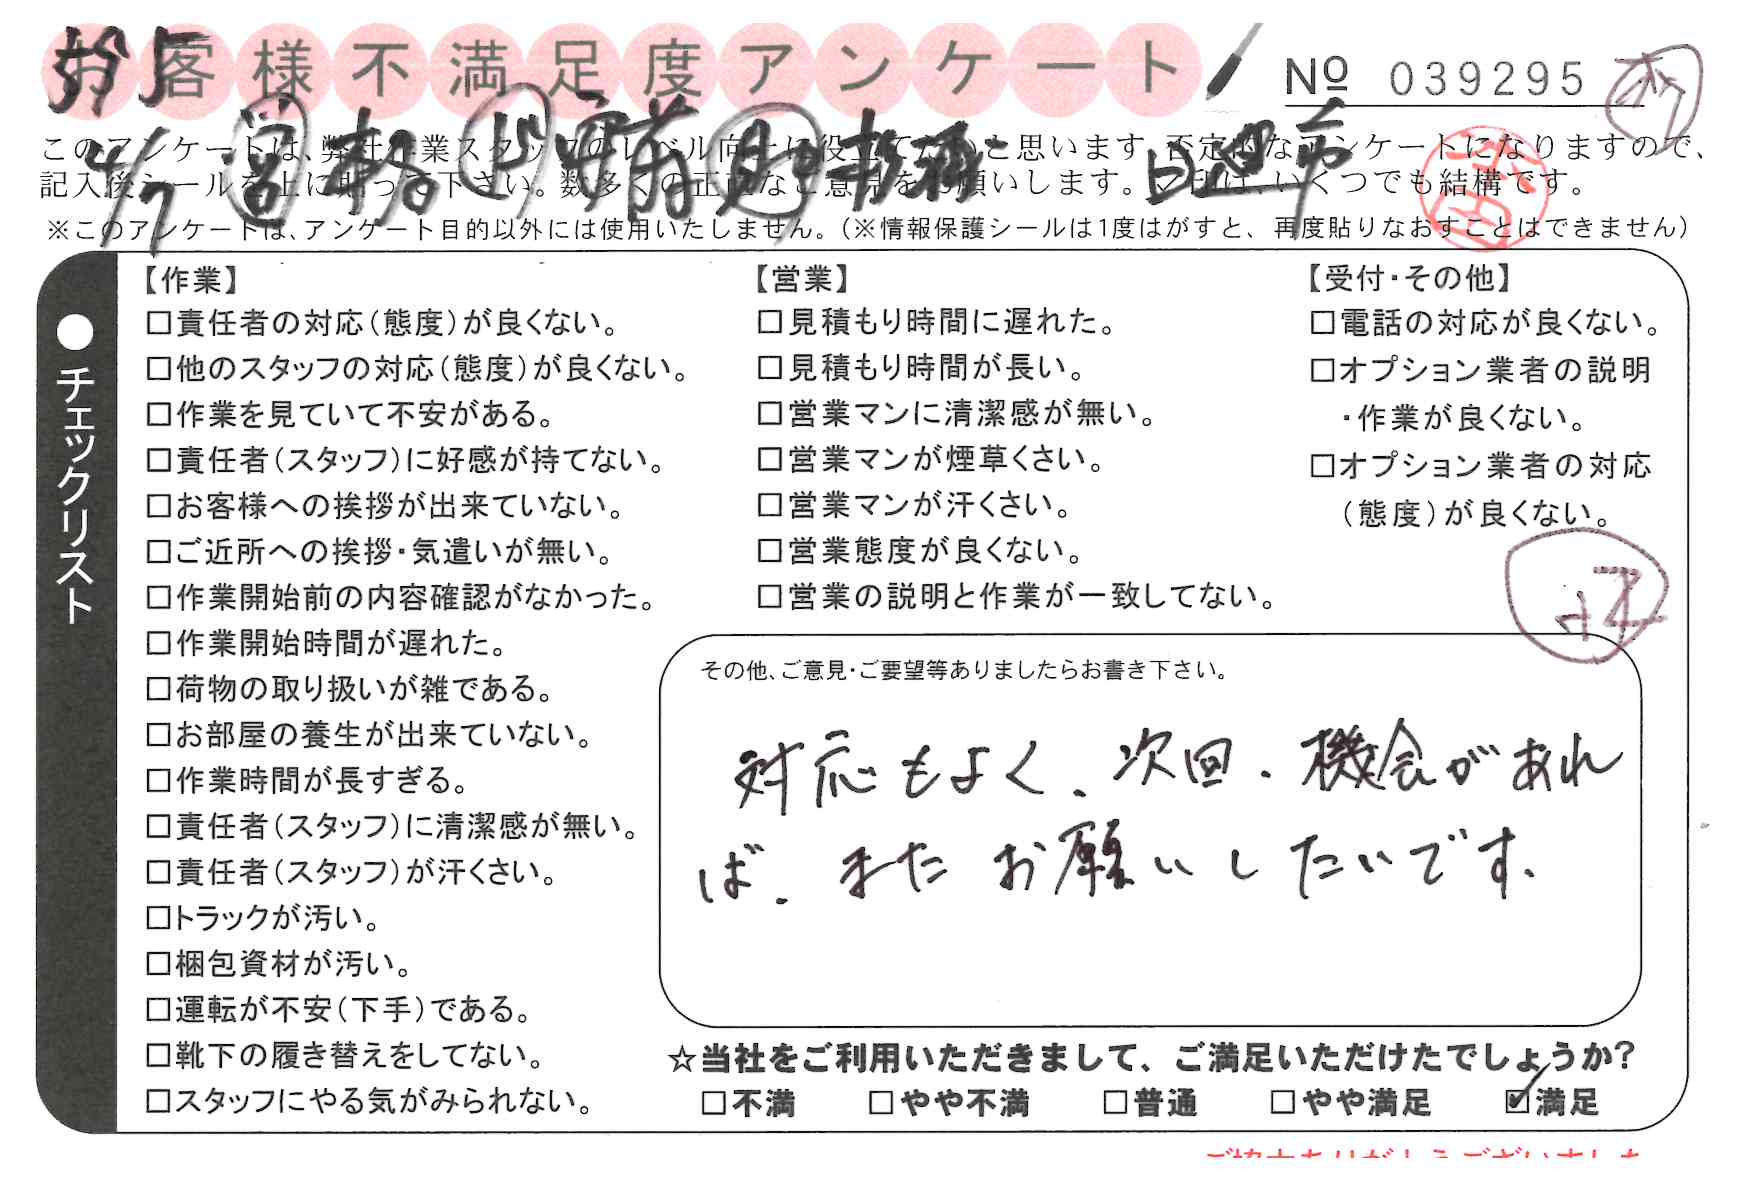 お客様不満足度アンケート
№ 039295
このアンケートは、弊社作業スタッフのレベル向上に役立てたいと思います。否定的なアンケートになりますので、
記入後シールを上に貼って下さい。数多くの正直なご意見をお願いします。✓印は、いくつでも結構です。
※このアンケートは、アンケート目的以外には使用いたしません。(※情報保護シールは1度はがすと、再度貼りなおすことはできません)
4/7
●チェックリスト
【作業】
□責任者の対応(態度)が良くない。
□他のスタッフの対応(態度)が良くない。
□作業を見ていて不安がある。
□責任者(スタッフ)に好感が持てない。
□お客様への挨拶が出来ていない。
□ご近所への挨拶・気遣いが無い。
□作業開始前の内容確認がなかった。
□作業開始時間が遅れた。
□荷物の取り扱いが雑である。
□お部屋の養生が出来ていない。
□作業時間が長すぎる。
□責任者(スタッフ)に清潔感が無い。
□責任者(スタッフ)が汗くさい。
□トラックが汚い。
□梱包資材が汚い。
□運転が不安(下手)である。
□靴下の履き替えをしてない。
□スタッフにやる気がみられない。
【営業】
□見積もり時間に遅れた。
□見積もり時間が長い。
□営業マンに清潔感が無い。
□営業マンが煙草くさい。
□営業マンが汗くさい。
□営業態度が良くない。
□営業の説明と作業が一致してない。
【受付・その他】
□電話の対応が良くない。
□オプション業者の説明
・作業が良くない。
□オプション業者の対応
(態度)が良くない。
その他、ご意見・ご要望等ありましたらお書き下さい。
対応もよく、次回、機会があれ
ば、またお願いしたいです、
☆当社をご利用いただきまして、ご満足いただけたでしょうか?
□不満 □やや不満 □普通 □やや満足 ☑満足
ご協力ありがとうございました